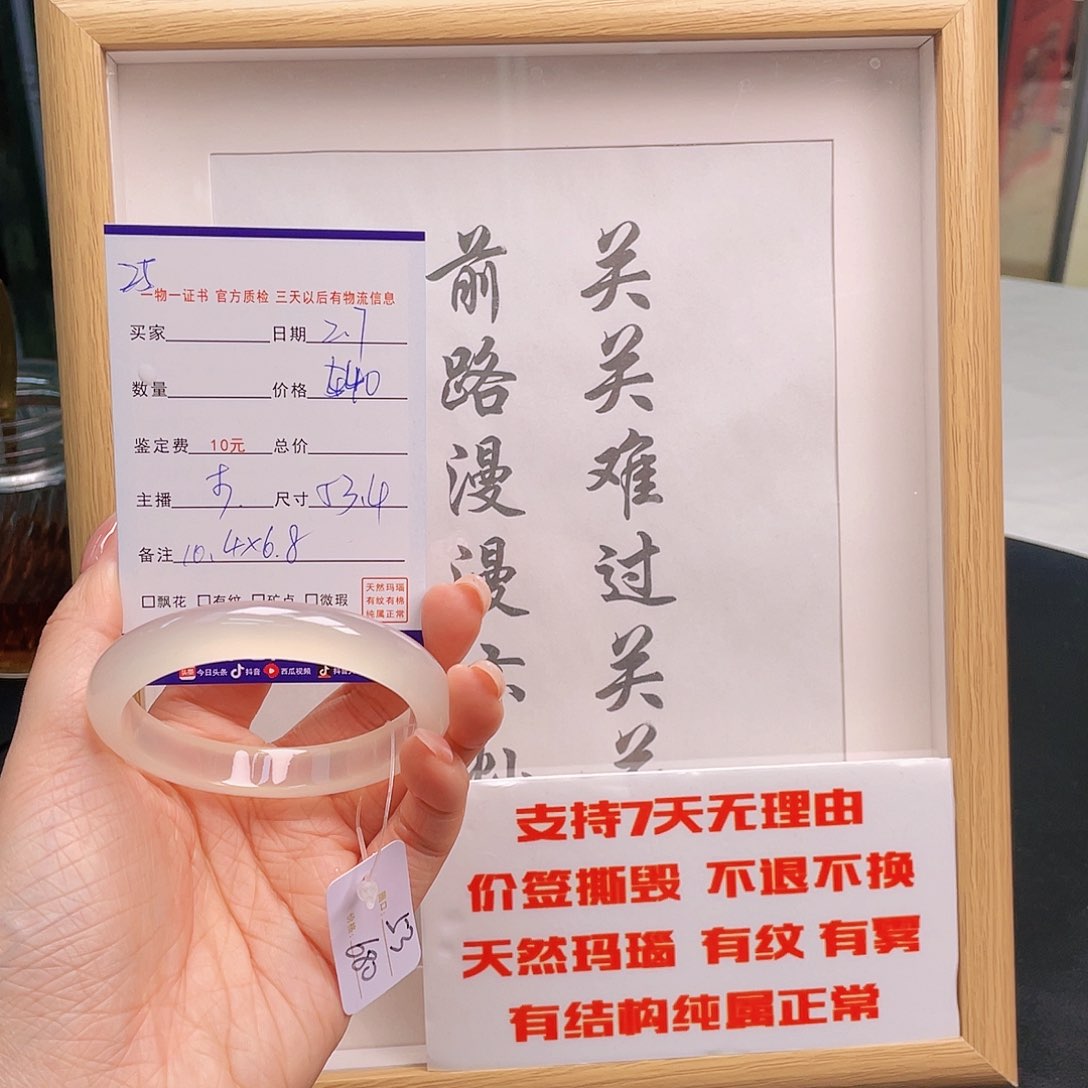 25
一物一证书 官方质检 三天以后有物流信息
买家 日期 2.7
数量 价格 540
鉴定费 10元 总价
主播 尺寸 53.4
备注 10.4×6.8
口飘花 口有纹 口矿点 口微瑕
天然玛瑙
有纹有棉
纯属正常
头条 今日头条 抖音 西瓜视频 抖音
关关难过关关
前路漫漫亦
支持7天无理由
价签撕毁 不退不换
天然玛瑙 有纹 有雾
有结构纯属正常
圈口: 53
价格: 680